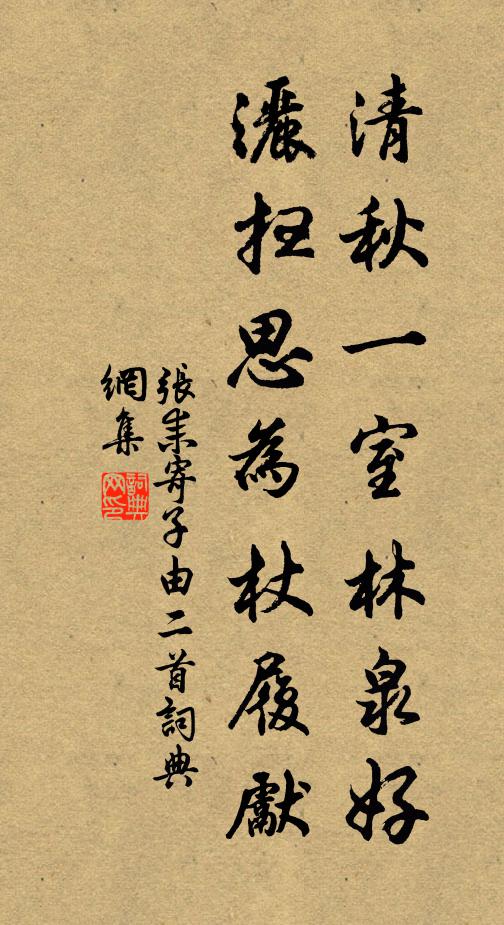 清秋一室林泉好
灑掃思為杖履獻
張耒寄子由二首詞典
網集
詞典網印